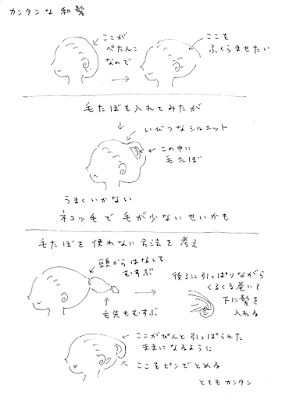 カンタンな和髪
ここが
ぺたんこ
なので
ここを
ふくらませたい
毛たぼを入れてみたが
いびつなシルエット
この中に
毛たぼ
うまくいかない
ネコッ毛で毛が少ないせいかも
毛たぼを使わない方法を考え
頭からはなして
むすぶ
毛先もむすぶ
後ろに引っぱりながら
くるくる巻いて
下に髪を
入れる
ここがぴんと引っぱられた
ままになるように
ここをピンでとめる
とてもカンタン